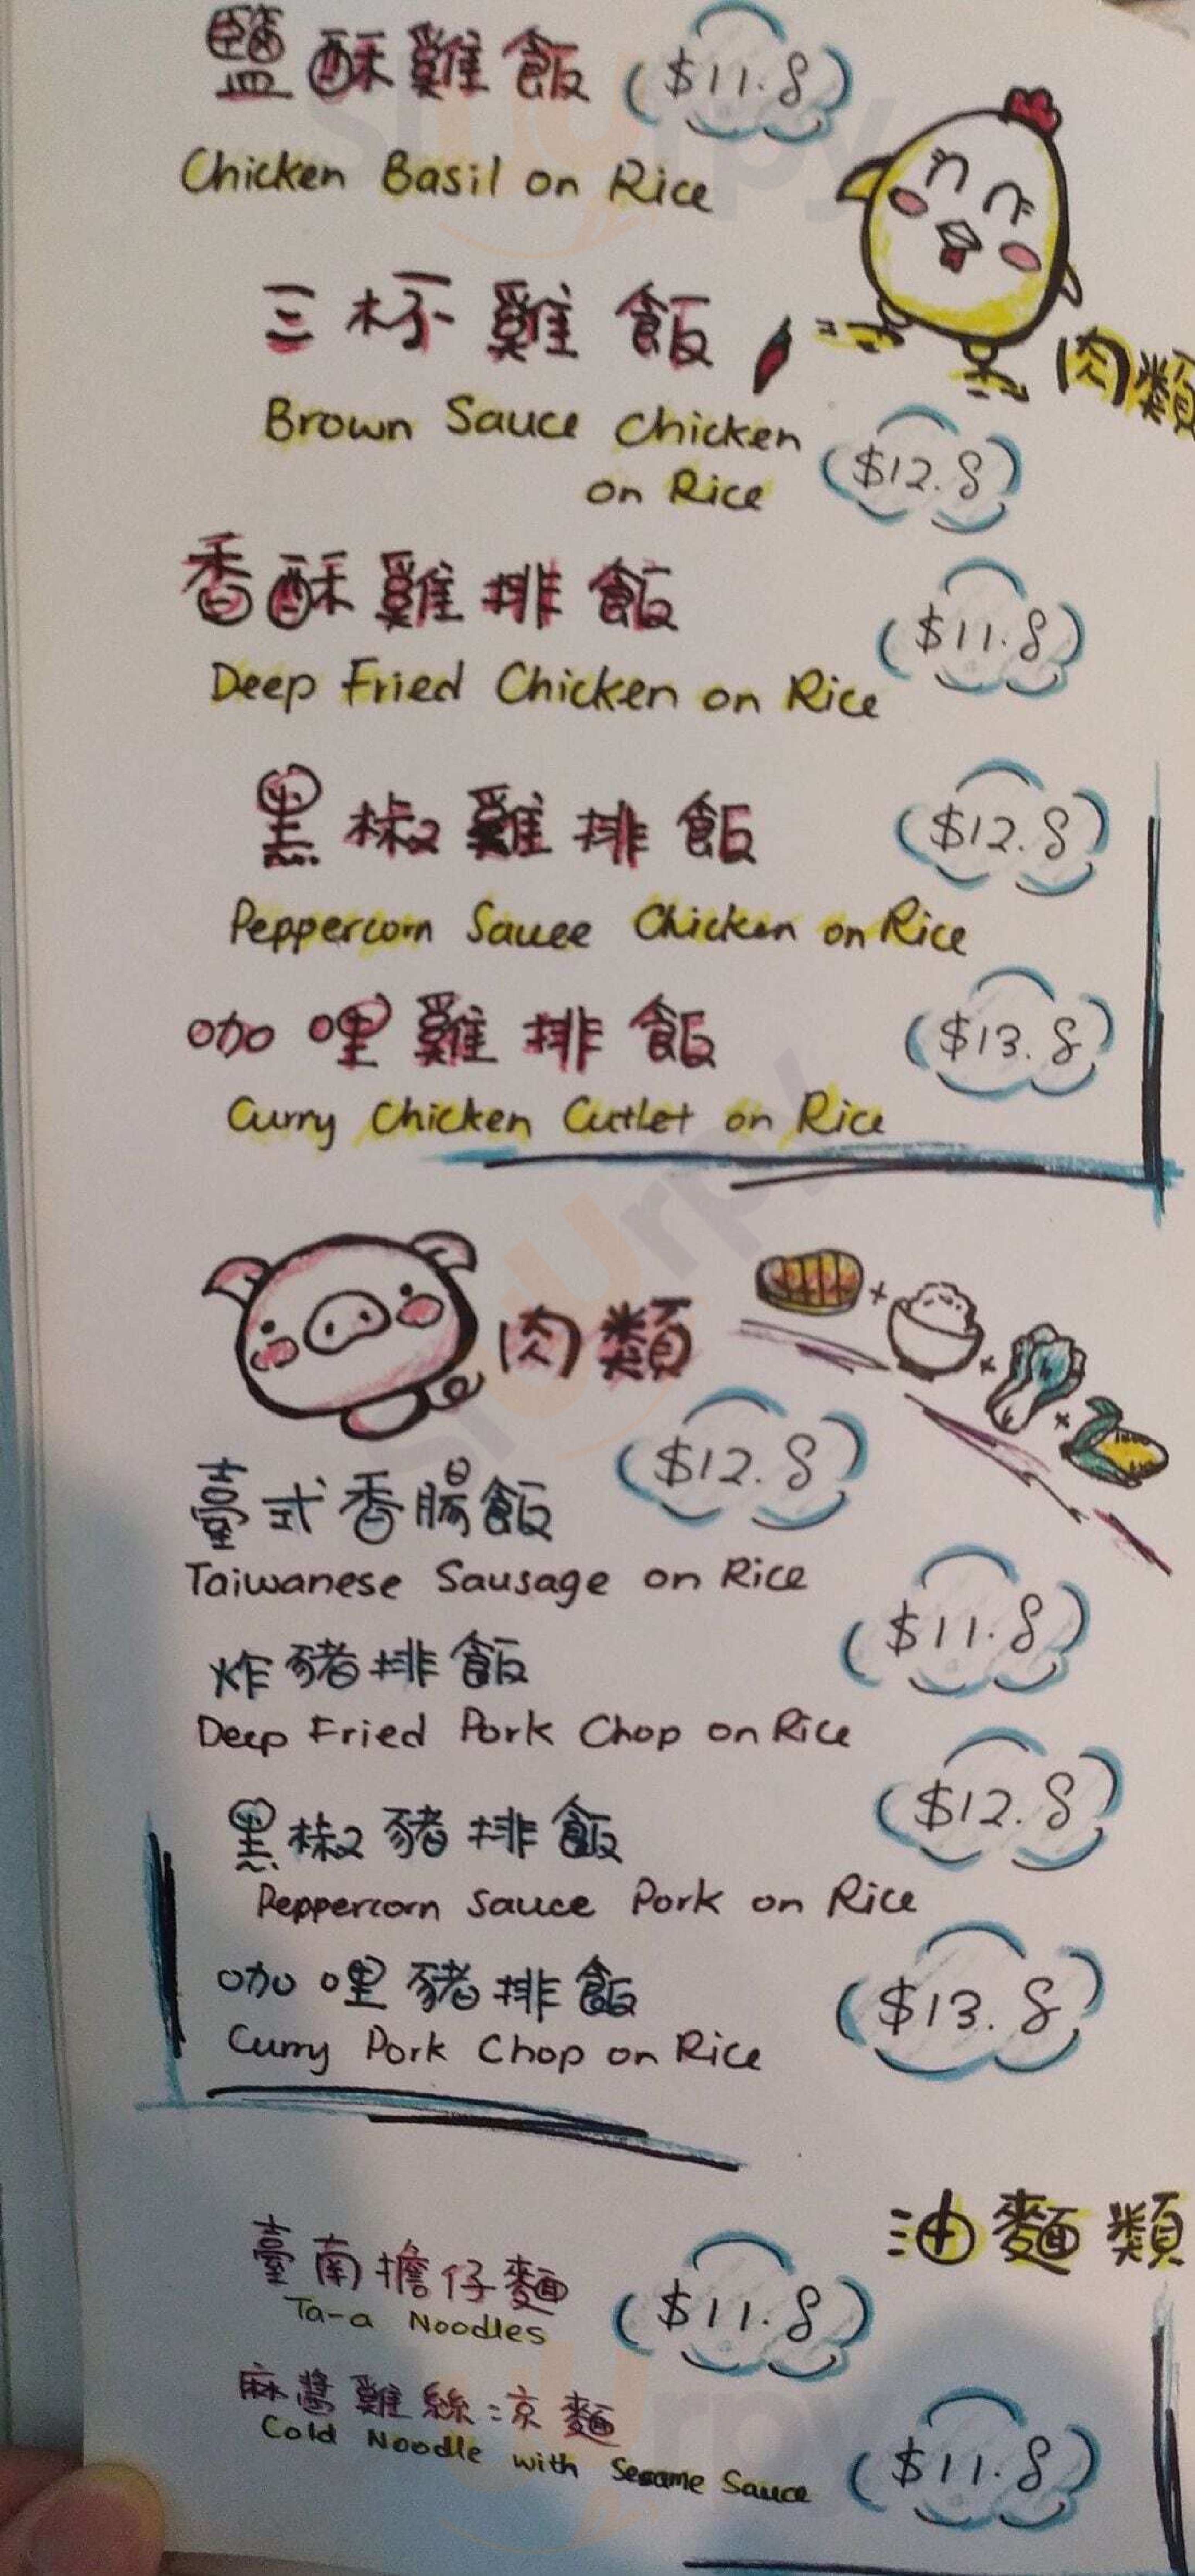 鹽酥雞飯 $11.8
Chicken Basil on Rice
三杯雞飯
肉類
Brown Sauce Chicken
on Rice
$12.8
香酥雞排飯
$11.8
Deep Fried Chicken on Rice
黑椒雞排飯 $12.8
Peppercorn Sauce Chicken on Rice
咖哩雞排飯 $13.8
Curry Chicken Cutlet on Rice
肉類
臺式香腸飯 $12.8
Taiwanese Sausage on Rice
炸豬排飯 $11.8
Deep Fried Pork Chop on Rice
黑椒豬排飯 $12.8
Peppercorn Sauce Pork on Rice
咖哩豬排飯 $13.8
Curry Pork Chop on Rice
油麵類
臺南擔仔麵 $11.8
Ta-a Noodles
麻醬雞絲涼麵
Cold Noodle with Sesame Sauce $11.8
slurpy
slurpy